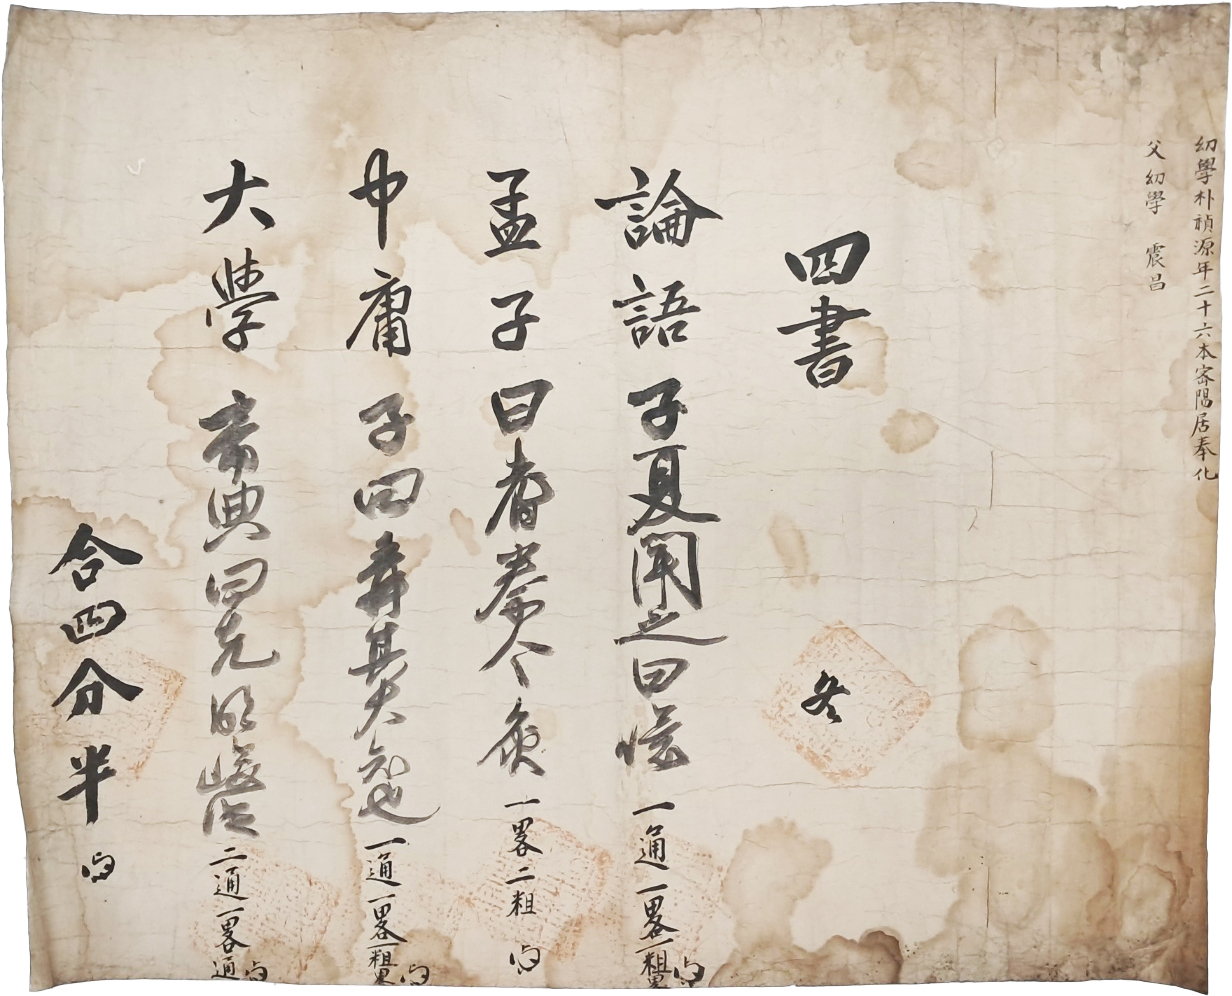 幼學朴禎源年二十六本密陽居奉化
父幼學 震昌
四書
冬
論語 子夏聞之曰噫 一通一畧一粗
孟子 曰者秦 炙 一畧二粗
中庸 子曰舜其大知也 一通一畧一粗
大學 帝典曰克明峻德 二通一畧 通
合四分半